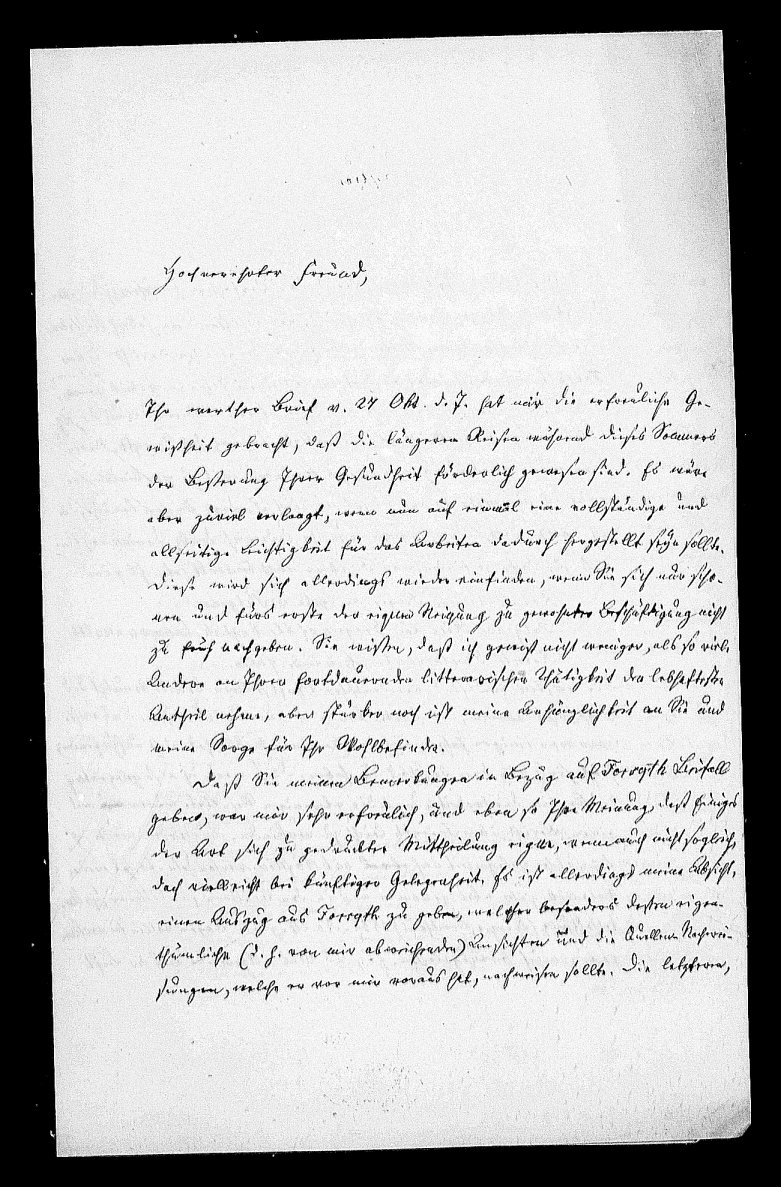 Hochverehrter Freund,
Ihr werther Brief v. 27 Okt. d. J. hat mir die erfreuliche Ge-
wißheit gebracht, daß die längeren Reisen während dieses Sommers
der Besserung Ihrer Gesundheit förderlich gewesen sind. Es wäre
aber zuviel verlangt, wenn nun auf einmal eine vollständige und
allseitige Leichtigkeit für das Arbeiten dadurch hergestellt seyn sollte.
Diese wird sich allerdings wieder einfinden, wenn Sie sich nur scho-
nen und fürs erste der eignen Neigung zu gewohnter Beschäftigung nicht
zu früh nachgeben. Sie wissen, daß ich gewiß nicht weniger, als so viele
Andere an Ihrer fortdauernden litterarischen Thätigkeit den lebhaftesten
Antheil nehme, aber stärker noch ist meine Anhänglichkeit an Sie und
meine Sorge für Ihr Wohlbefinden.
Daß Sie meinen Bemerkungen in Bezug auf Forsyth Beifall
geben, war mir sehr erfreulich, und eben so Ihre Meinung, daß Einiges
der Art sich zu gedruckter Mittheilung eigne, wenn auch nicht sogleich,
doch vielleicht bei künftiger Gelegenheit. Es ist allerdings meine Absicht,
einen Auszug aus Forsyth zu geben, welcher besonders dessen eigen-
thümliche (d. h. von mir abweichenden) Ansichten und die Quellen-Nachwei-
sungen, welche er vor mir voraus hat, nachweisen sollte. Die letzteren,